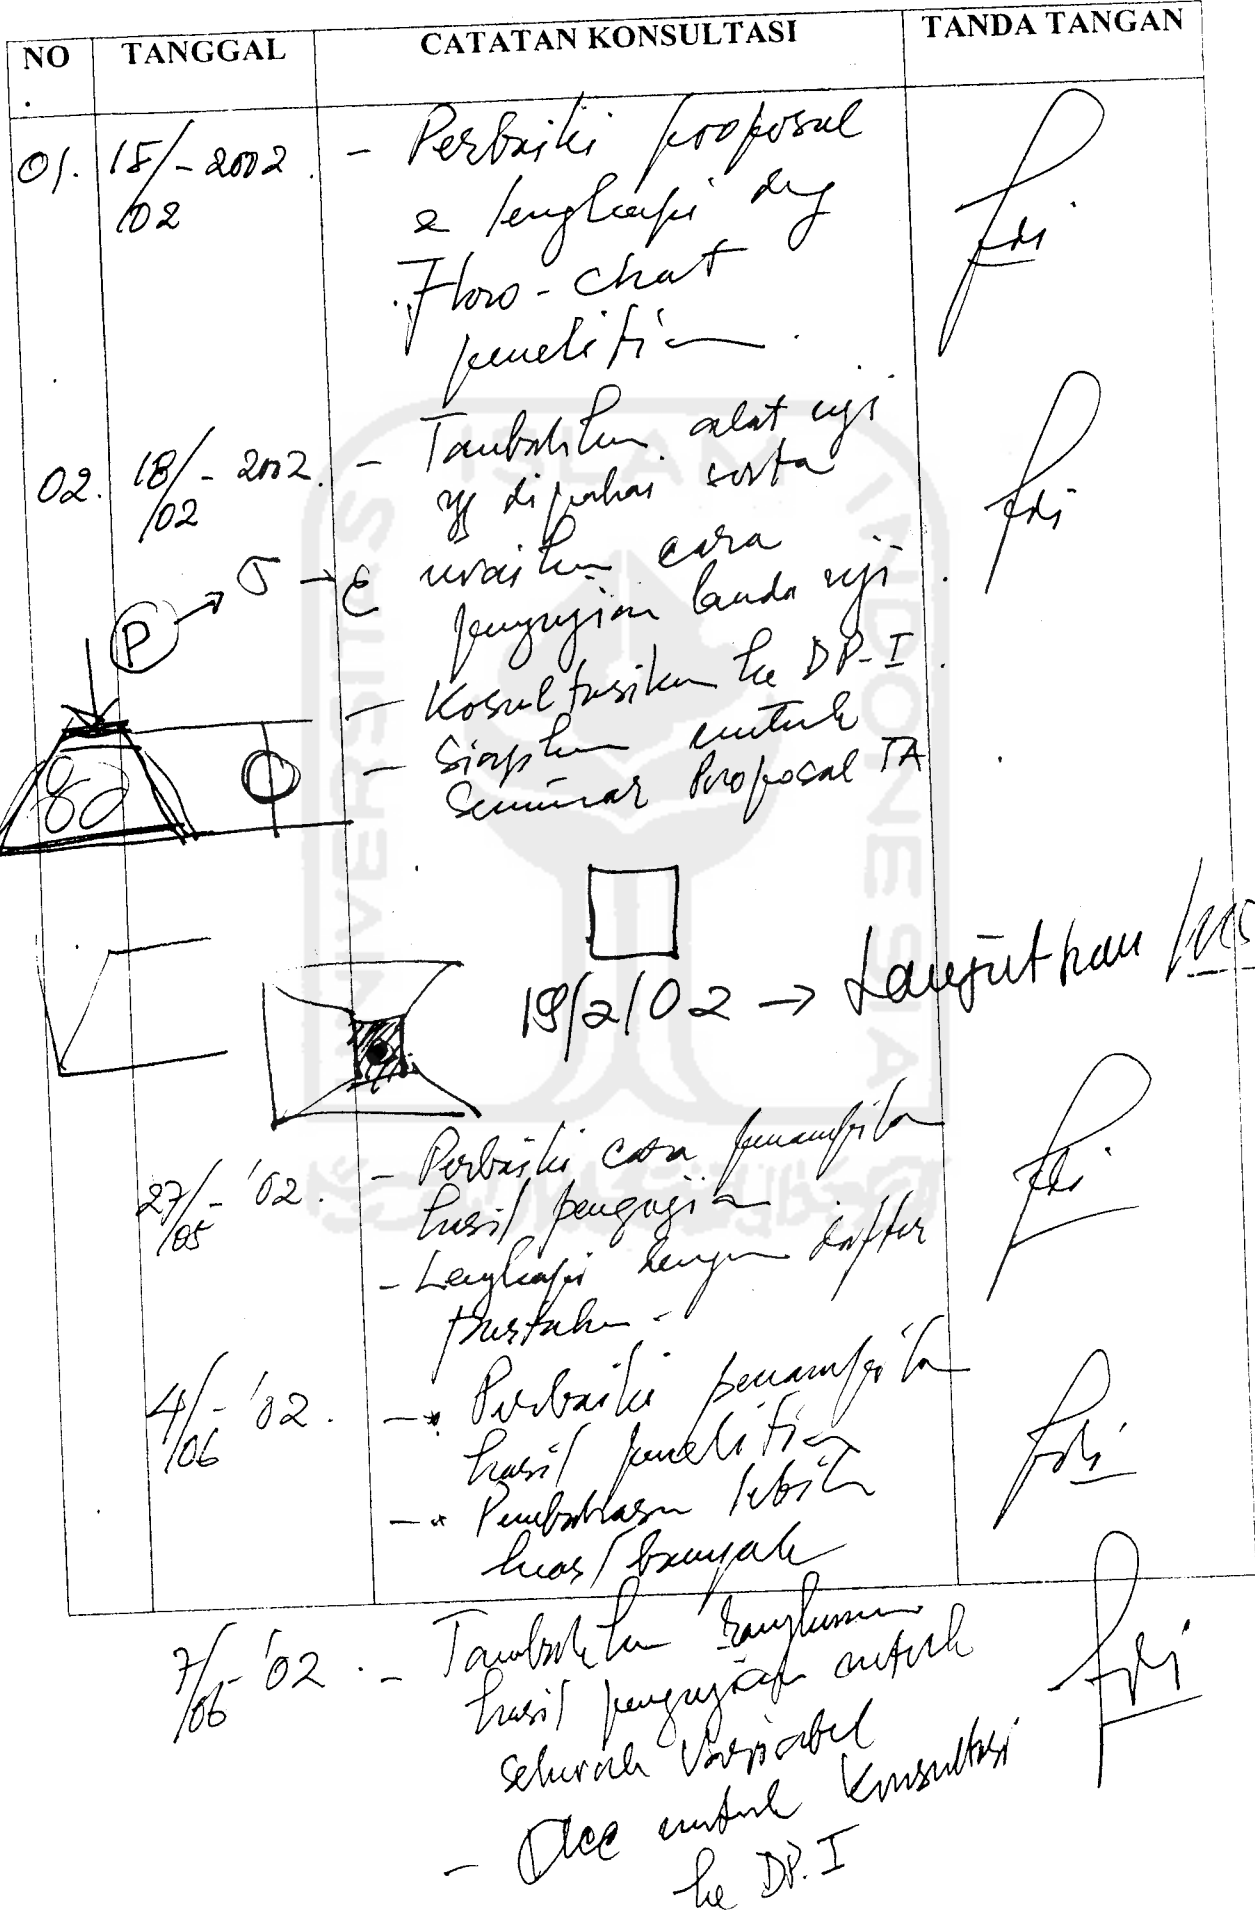 NO TANGGAL CATATAN KONSULTASI TANDA TANGAN
.
01. 15/02-2002. - Perbaiki proposal
& lengkapi dng
Flow-chat
penelitian.
02. 18/02-2002. - Tambahkan alat uji
yg dipakai serta
uraikan cara
pengujian benda uji.
P → σ → ε
- Kosultasikan ke DP-I.
- Siapkan untuk
Seminar Proposal TA
19/2/02 → Lanjutkan
27/05-'02. - Perbaiki cara penampilan
hasil pengujian
- Lengkapi dengan daftar
pustaka.
4/06-'02. - Perbaiki penampilan
hasil penelitian
- Pembahasan lebih
luas/banyak
7/06-'02. - Tambahkan rangkuman
hasil pengujian untuk
seluruh variabel
- Acc untuk Konsultasi
ke DP.I
UNIVERSITAS ISLAM INDONESIA